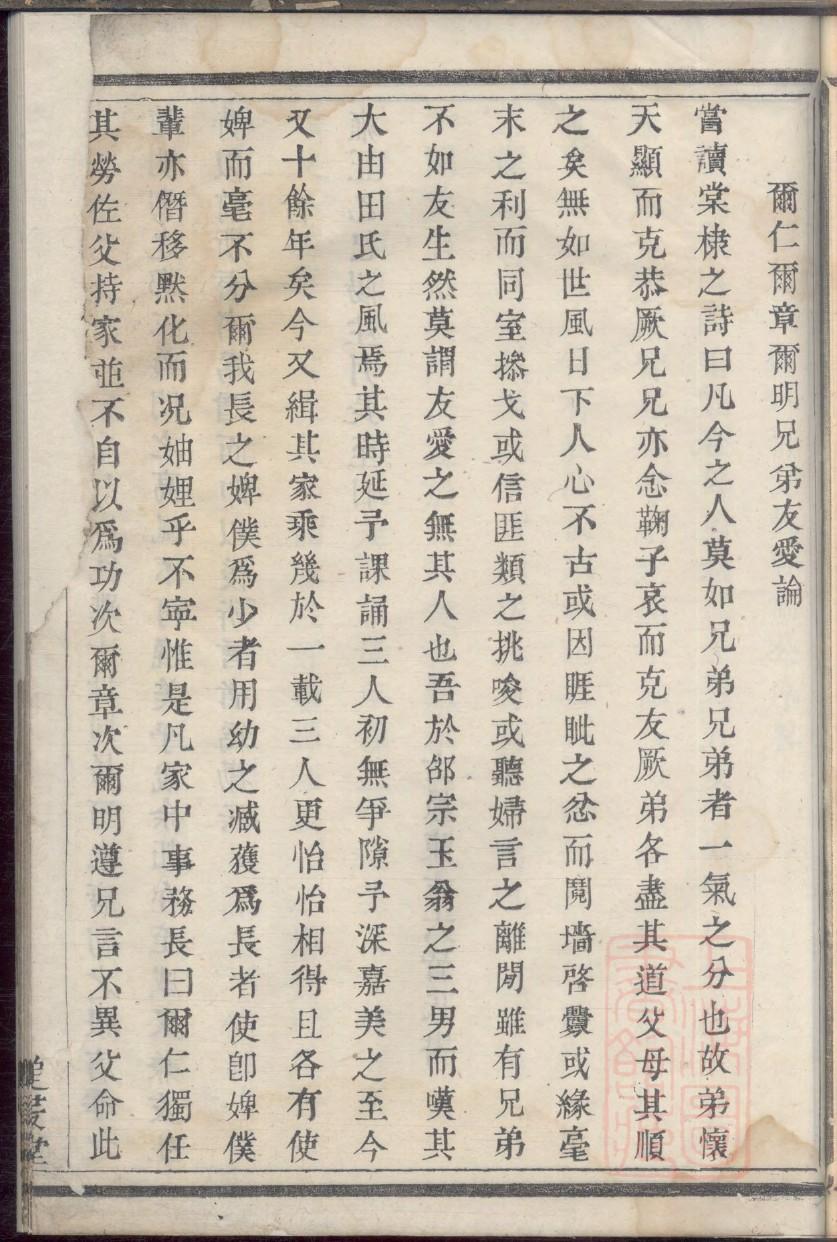 爾仁爾章爾明兄弟友愛論
嘗讀棠棣之詩曰凡今之人莫如兄弟兄弟者一氣之分也故弟懷
天顯而克恭厥兄兄亦念鞠子哀而克友厥弟各盡其道父母其順
之矣無如世風日下人心不古或因睚眦之忿而鬩墻啓釁或緣毫
末之利而同室操戈或信匪類之挑唆或聽婦言之離間雖有兄弟
不如友生然莫謂友愛之無其人也吾於邵宗玉翁之三男而嘆其
大由田氏之風焉其時延予課誦三人初無爭隙予深嘉美之至今
又十餘年矣今又緝其家乘幾於一載三人更怡怡相得且各有使
婢而毫不分爾我長之婢僕爲少者用幼之臧獲爲長者使卽婢僕
輩亦僭移默化而况妯娌乎不寧惟是凡家中事務長曰爾仁獨任
其勞佐父持家並不自以爲功次爾章次爾明遵兄言不異父命此